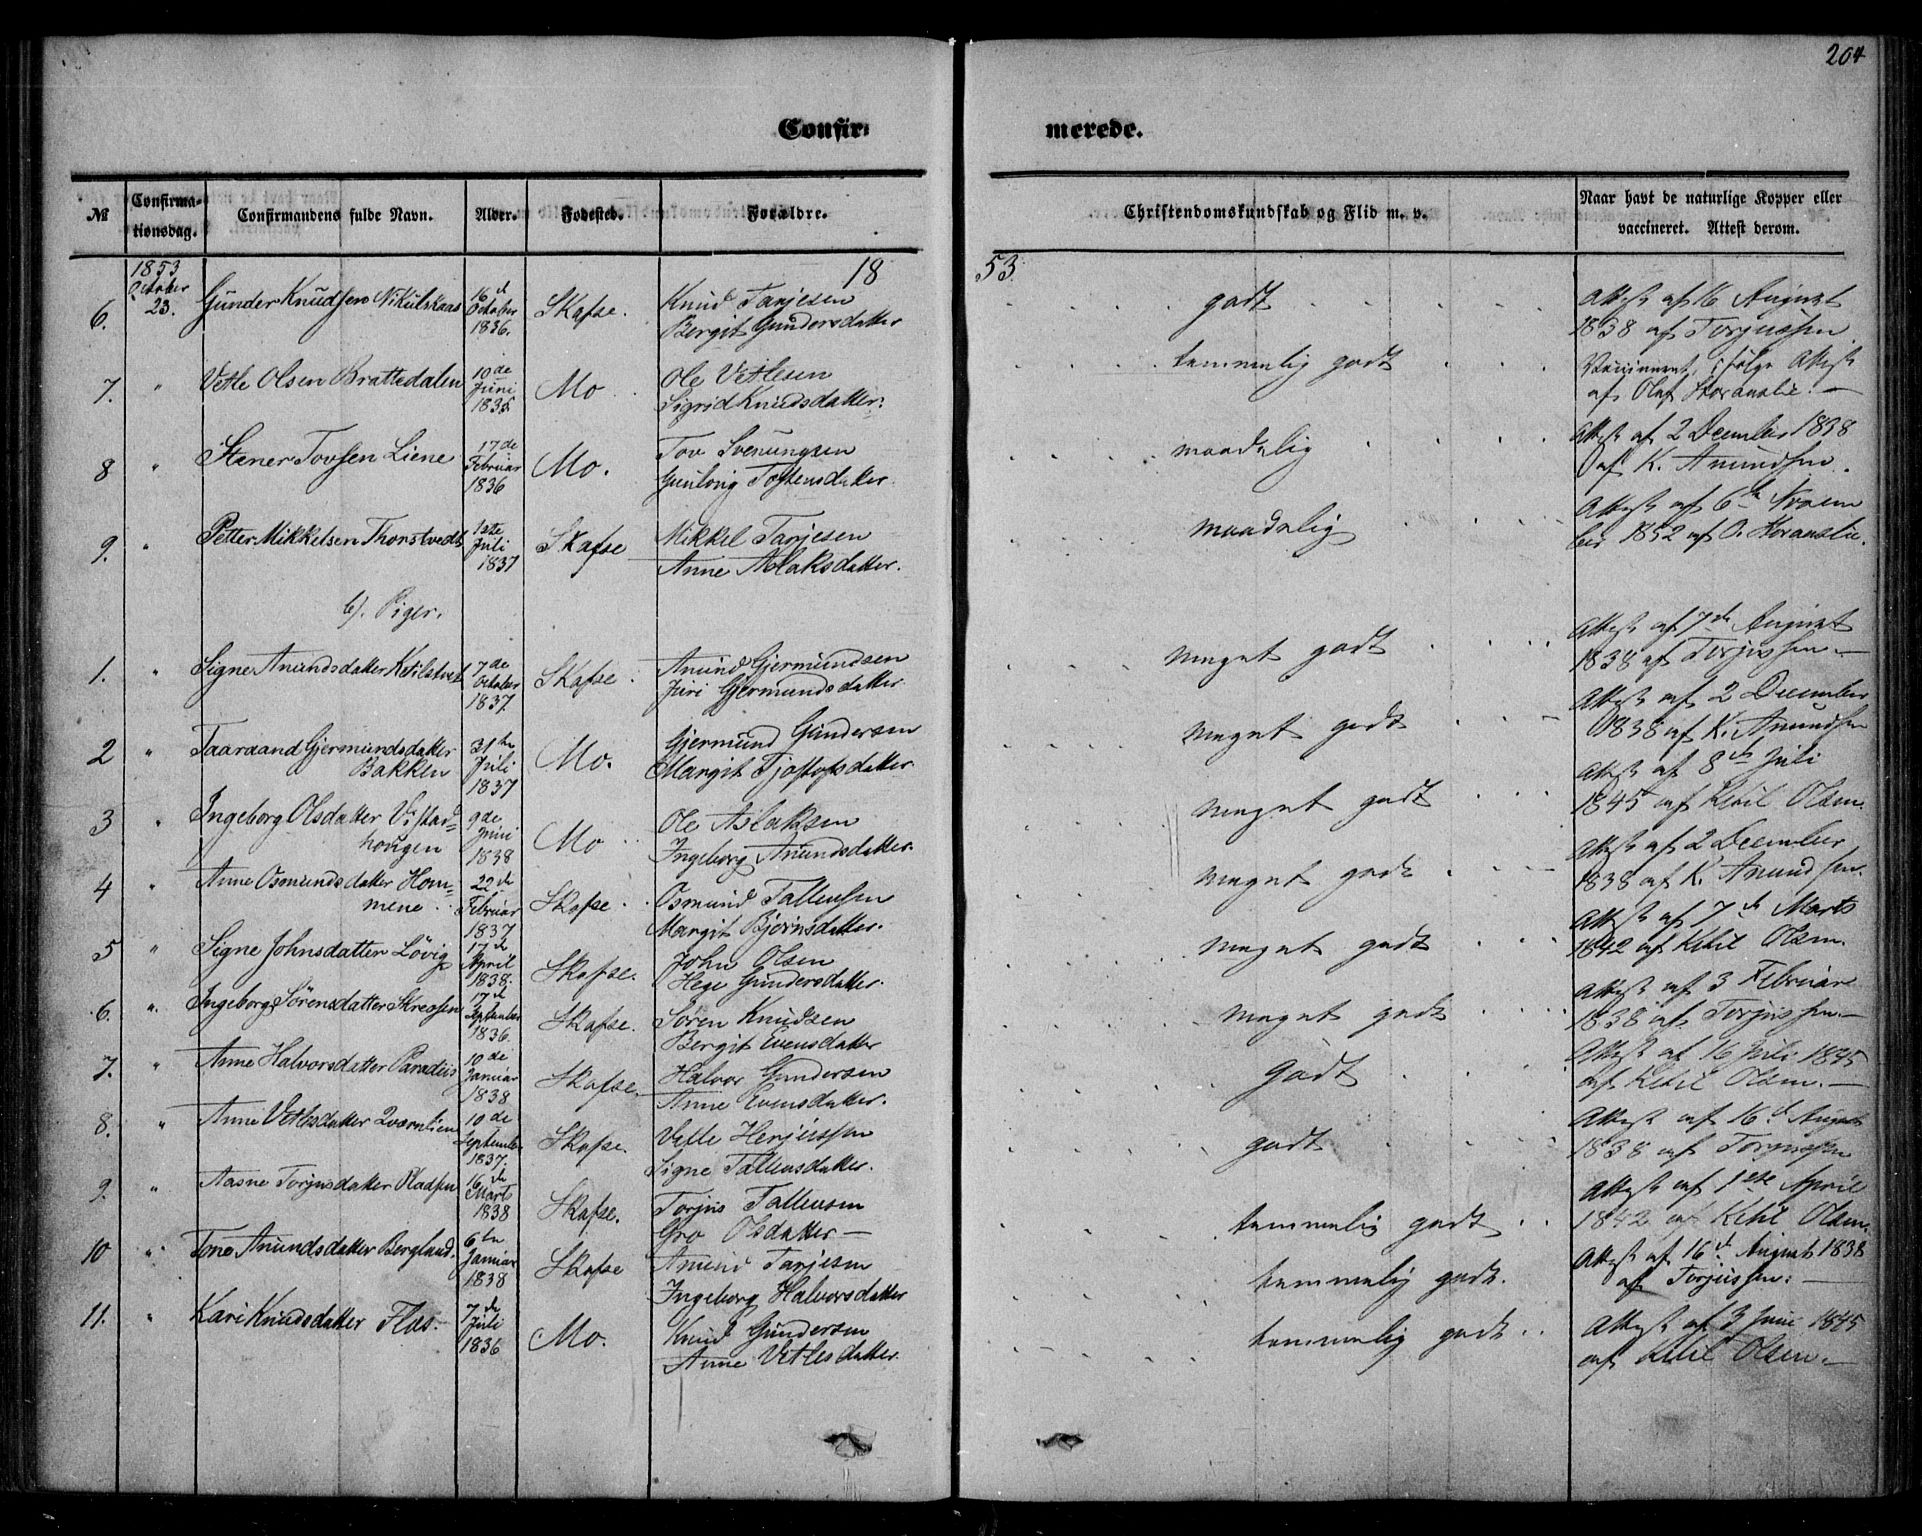 204
Confir-
merede.
№
Confirma-
tionsdag.
Confirmandens fulde Navn.
Alder.
Fødested.
Forældre.
Christendomskundskab og Flid m. v.
Naar havt de naturlige Kopper eller
vaccineret. Attest derom.
1853
18
53
October
23.
6.
Gunder Knudsen Nikulskaas
16d
October
1836.
Skafse.
Knud Tarjesen
Bergit Gundersdatter
godt
Attest af 16 August
1838 af Torjussen
7. "
Vetle Olsen Brattedalen
10de
Juni
1835
Mo
Ole Vetlesen
Sigrid Knudsdatter.
temmelig godt
Vaccineret, ifølge Attest
af Olaf Storaaslie.
8 "
Stener Tovsen Liene
17de
Februar
1836
Mo.
Tov Svenungsen
Gunlaug Tostensdatter
maadelig
Attest af 2 December 1838
af K. Anundsen.
9. "
Petter Mikkelsen Thorstvedt
1ste
Juli
1837
Skafse
Mikkel Tarjesen
Anne Aslaksdatter.
maadelig
Attest af 6te Novem
ber 1852 af O. Storaaslie.
b). Piger.
1. "
Signe Anundsdatter Ketilstvet
7de
October
1837.
Skafse
Anund Gjermundsen
Juri Gjermundsdatter
meget godt
Attest af 7de August
1838 af Torjussen
2 "
Taaraand Gjermundsdatter
Bakken
31te
Juli
1837
Mo.
Gjermund Gundersen
Margit Tjostofsdatter
meget godt
Attest af 2 December
1838 af K. Anundsen
3 "
Ingeborg Olsdatter Vistad-
hougen
9de
Juni
1838
Mo
Ole Aslaksen
Ingeborg Anundsdatter
meget godt
Attest af 8de Juli
1845 af Ketil Olsen
4 "
Anne Osmundsdatter Hom-
mene
22de
Februar
1837
Skafse
Osmund Tallensen
Margit Bjørnsdatter.
meget godt
Attest af 2 December
1838 af K. Anundsen.
5 "
Signe Johnsdatter Løvig
17de
April
1838.
Skafse.
John Olsen
Hege Gundersdatter.
meget godt
Attest af 7de Marts
1842 af Ketil Olsen.
6. "
Ingeborg Sørensdatter Skreosen
17de
September
1836.
Skafse.
Søren Knudsen
Bergit Evensdatter
meget godt
Attest af 3 Februar
1838 af Torjussen
7. "
Anne Halvorsdatter Paradiis
10de
Januar
1838
Skafse.
Halvor Gundersen
Anne Evensdatter.
Godt
Attest af 16 Juli 1845
af Ketil Olsen.
8. "
Anne Vetlesdatter Qværnlien
10de
September
1837.
Skafse.
Vetle Herjussen
Signe Tallensdatter.
godt
Attest af 16d August
1838 af Torjussen
9. "
Aasne Torjusdatter Pladsen
16de
Marts
1838
Skafse.
Torjus Tallensen
Gro Olsdatter
temmelig godt
Attest af 1ste April
1842 af Ketil Olsen.
10 "
Tone Anundsdatter Bergland
6te
Januar
1838
Skafse
Anund Tarjesen
Ingeborg Halvorsdatter
temmelig godt.
Attest af 16d August 1838
af Torjussen.
11. "
Kari Knudsdatter Flos
7de
Juli
1836
Mo.
Knud Gundersen
Anne Vetlesdatter
temmelig godt
Attest af 3 Juni 1845
af Ketil Olsen.